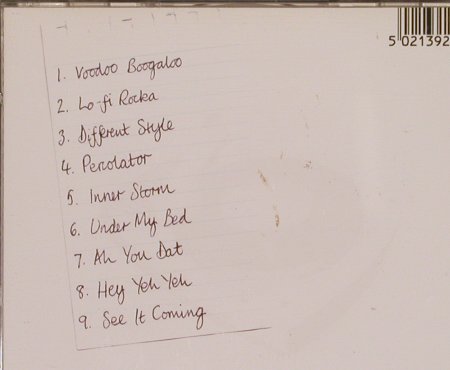 5 021392
1. Voodoo Boogaloo
2. Lo-fi Rocka
3. Different Style
4. Percolator
5. Inner Storm
6. Under My Bed
7. Ah You Dat
8. Hey Yeh Yeh
9. See It Coming